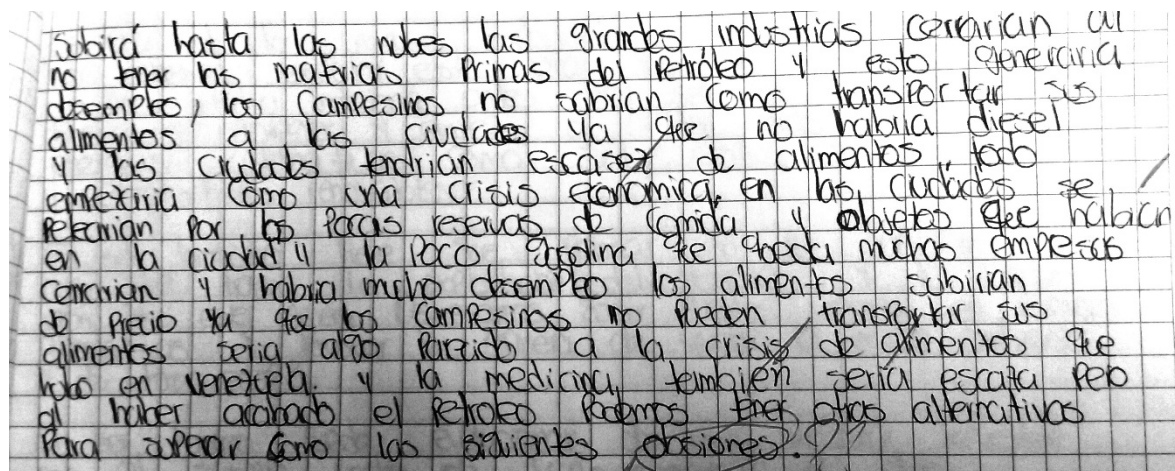 subirá hasta las nubes las grandes industrias cerrarian al
no tener las materias Primas del Petróleo y esto generaria
desempleo, los Campesinos no sabrian como transportar sus
alimentos a las ciudades ya que no habria diesel
y las ciudades tendrian escasez de alimentos, todo
empezaria como una crisis economica, en las ciudades se
Pelearian Por las Pocas reservas de comida y objetos que habian
en la ciudad y la Poco gasolina que queda muchas empresas
cerrarian y habria mucho desempleo los alimentos subirian
de Precio ya que los campesinos no Pueden transportar sus
alimentos seria algo Parecido a la crisis de alimentos que
hubo en venezuela. y la medicina tambien seria escaza Pero
al haber acabado el Petroleo Podemos tener otras alternativas
Para superar como las siguientes obsiones.